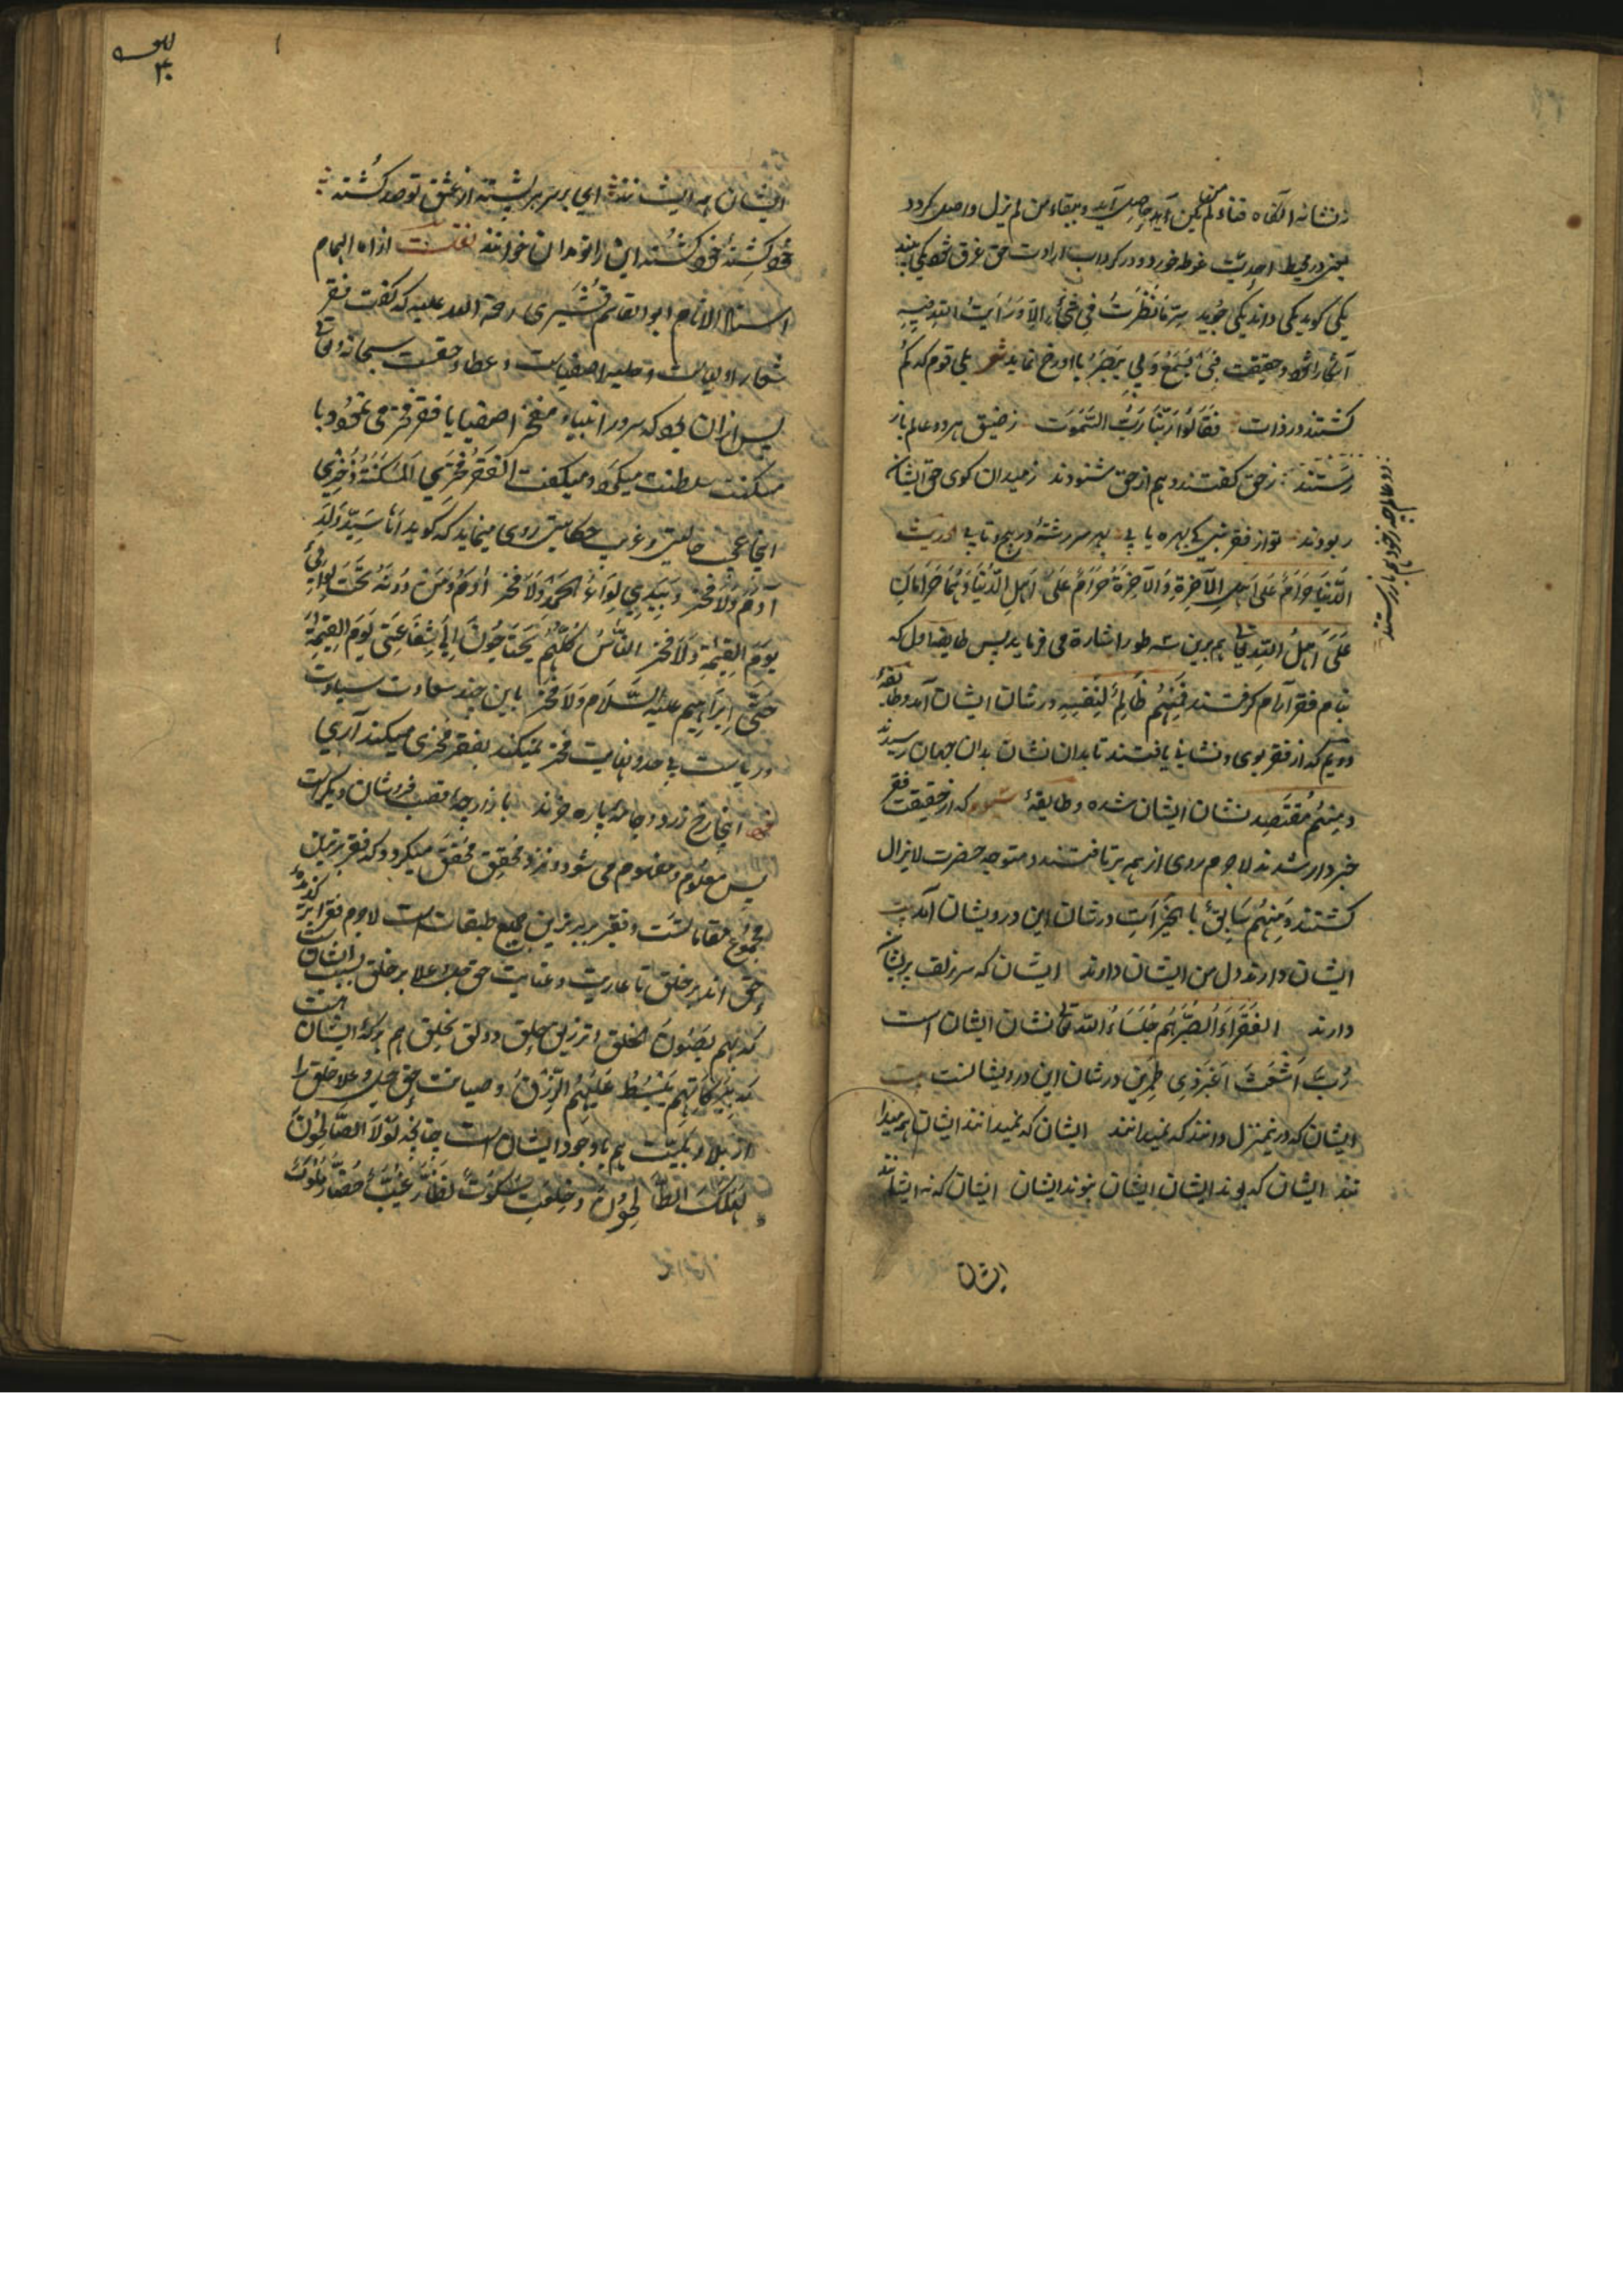 نه نشانه آنگاه فناء لم یکن آید حاصل آید و ببقاء من لم یزل واصل گردد
در محیط احدیت غوطه خورد و در گرداب ارادت حق غرق شود یکی بیند
یکی گوید یکی داند یکی جوید سر ما نَظَرْتُ فِي شَیْءٍ اِلَّا وَرَاَیْتُ اللهَ فِیهِ
آشکارا شود و حقیقت بِي یَسْمَعُ وَبِي یُبْصِرُ با او رخ نماید شعر بلی قوم که گم
گشتند در ذات فَقَالُوا رَبُّنَا رَبُّ السَّمٰوٰت ز ضیق هر دو عالم باز
رستند ز حق گفتند و هم از حق شنودند ز میدان گوی حق ایشان
ربودند تو از فقر نبی کی بهره یابی بهر سررشتهٔ در پیچ و تابی حدیث
الدُّنْیَا حَرَامٌ عَلَی اَهْلِ الْآخِرَةِ وَالْآخِرَةُ حَرَامٌ عَلَی اَهْلِ الدُّنْیَا وَهُمَا حَرَامَانِ
عَلَی اَهْلِ اللهِ تعالی هم برین سه طور اشارة می فرماید پس طایفه اول که
بنام فقر آرام گرفتند فَمِنْهُمْ ظَالِمٌ لِنَفْسِهِ در شان ایشان آمد و طایفهٔ
دویم که از فقر بوی و نشانی یافتند تا بدان نشان بدان جهان رسیدند
و مِنْهُمْ مُقْتَصِد نشان ایشان شده و طایفهٔ سیوم که از حقیقت فقر
خبردار شدند لاجرم روی از همه برتافتند و متوجه حضرت لایزال
گشتند وَمِنْهُمْ سَابِقٌ بِالْخَیْرَاتِ در شان این درویشان آمد بیت
ایشان دارند دل من ایشان دارند ایشان که سر زلف پریشان
دارند الفُقَرَاءُ الصُّبَّرُ هُمْ جُلَسَاءُ الله تعالی نشان ایشان است
رُبَّ اَشْعَثَ اَغْبَرَ ذِی طِمْرَیْن در شان این درویشانست بیت
ایشان که در منزل دانند که نمیدانند ایشان که نمیدانند ایشان همه میدا
نند ایشان که بوند ایشان ایشان نبوند ایشان ایشان که نه ایشانند
دو عالم چه ز خود هم باز رستند
ایشان
ایشان همه ایشانند ای بر سر هر پشته از عشق تو صد کشته
خود کشتهٔ خود کشته این را تو بدان خوانند نقلست از امام الهمام
استاد الانام ابو القاسم قُشَیْری رحمة الله علیه که گفت فقر
شعار اولیاست و حلیه اصفیاست و عطاء حضرت سبحانه و تعالی
پس از آن بود که سرور انبیاء و مفخر اصفیا با فقر فخر می نمود و با
مسکنت سلطنت میکرد و میگفت الفَقْرُ فَخْرِي الْمَسْکَنَةُ ذُخْرِي
اینجا عجب حالیتی و غریب حکایتی روی مینماید که گوید اَنَا سَیِّدُ وُلْدِ
آدَمَ وَلَا فَخْرَ وَبِیَدِي لِوَاءُ الْحَمْدِ وَلَا فَخْرَ آدَمُ وَمَنْ دُونَهُ تَحْتَ لِوَائِي
یَوْمَ الْقِیٰمَةِ وَلَا فَخْرَ النَّاسُ کُلُّهُمْ یَحْتَاجُونَ اِلَی شَفَاعَتِي یَوْمَ الْقِیٰمَةِ
حَتَّی اِبْرَاهِیم عَلَیْهِ السَّلَام وَلَا فَخْرَ باین چند سعادت سیادت
و ریاست بی حد و نهایت فخر نمیکند بفقر فخری میکند آری
اینجا رخ زرد و جامهٔ پاره خرند بازارچهٔ قصب فروشان دیگرست
پس معلوم و مفهوم می شود و نزد مُحَقِّق مُحَقَّق میگردد که فقر برترین
مجموع مقاماتست و فقیر برترین جمیع طبقات است لاجرم فقرا
حق اند بر خلق تا عاریت و عنایت حق جل و علا بر خلق بسبب ایشان
که بهم یصون الخلق و ترزیق حلق و دلق بخلق هم ببرکهٔ ایشان
که بِبَرَکَاتِهِمْ یَنْبَسِطُ عَلَیْهِمُ الرِّزْقُ و صیانت حق جل و علا خلق را
از بلا و بلیّت هم با وجود ایشان است چنانچه لَوْلَا الصَّالِحُونَ
لَهَلَکَ الطَّالِحُونَ